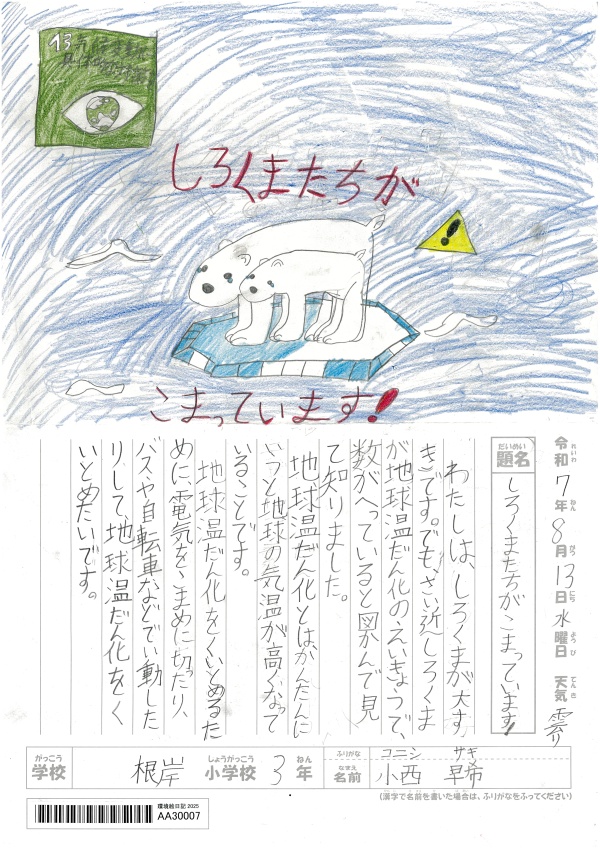 13
しろくまたちが
こまっています!
令和7年8月13日水曜日 天気 曇り
れいわ ねん がつ にち ようび てんき
だいめい
題名
しろくまたちがこまっています!
わたしは、しろくまが大す
きです。でも、さい近しろくま
が地球温だん化のえいきょうで、
数がへっていると図かんで見
て知りました。
地球温だん化とは、かんたんに
いうと地球の気温が高くなって
いることです。
地球温だん化をくいとめるた
めに、電気をこまめに切ったり、
バスや自転車などでい動した
りして、地球温だん化をく
いとめたいです。
がっこう しょうがっこう ねん
学校 根岸 小学校 3年
ふりがな コニシ サキ
なまえ
名前 小西 早希
(漢字で名前を書いた場合は、ふりがなをふってください)
環境絵日記 2025
AA30007